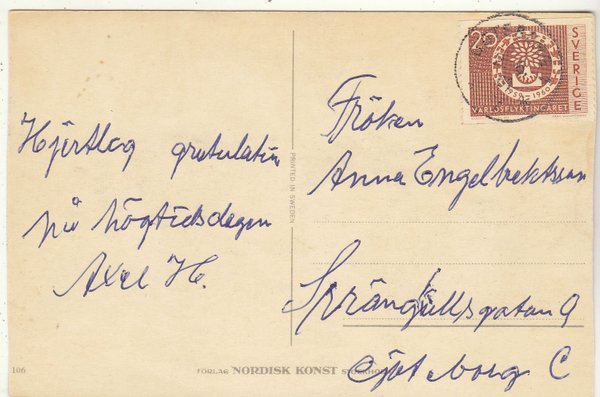 Hjertlog gratulation
på högtidsdagen
Axel H.
PRINTED IN SWEDEN
106
FÖRLAG NORDISK KONST STOCKHOLM
20
SVERIGE
1959 1960
VÄRLDSFLYKTINGÅRET
Fröken
Anna Engelbrektsson
Sprängkullsgatan 9
Göteborg C